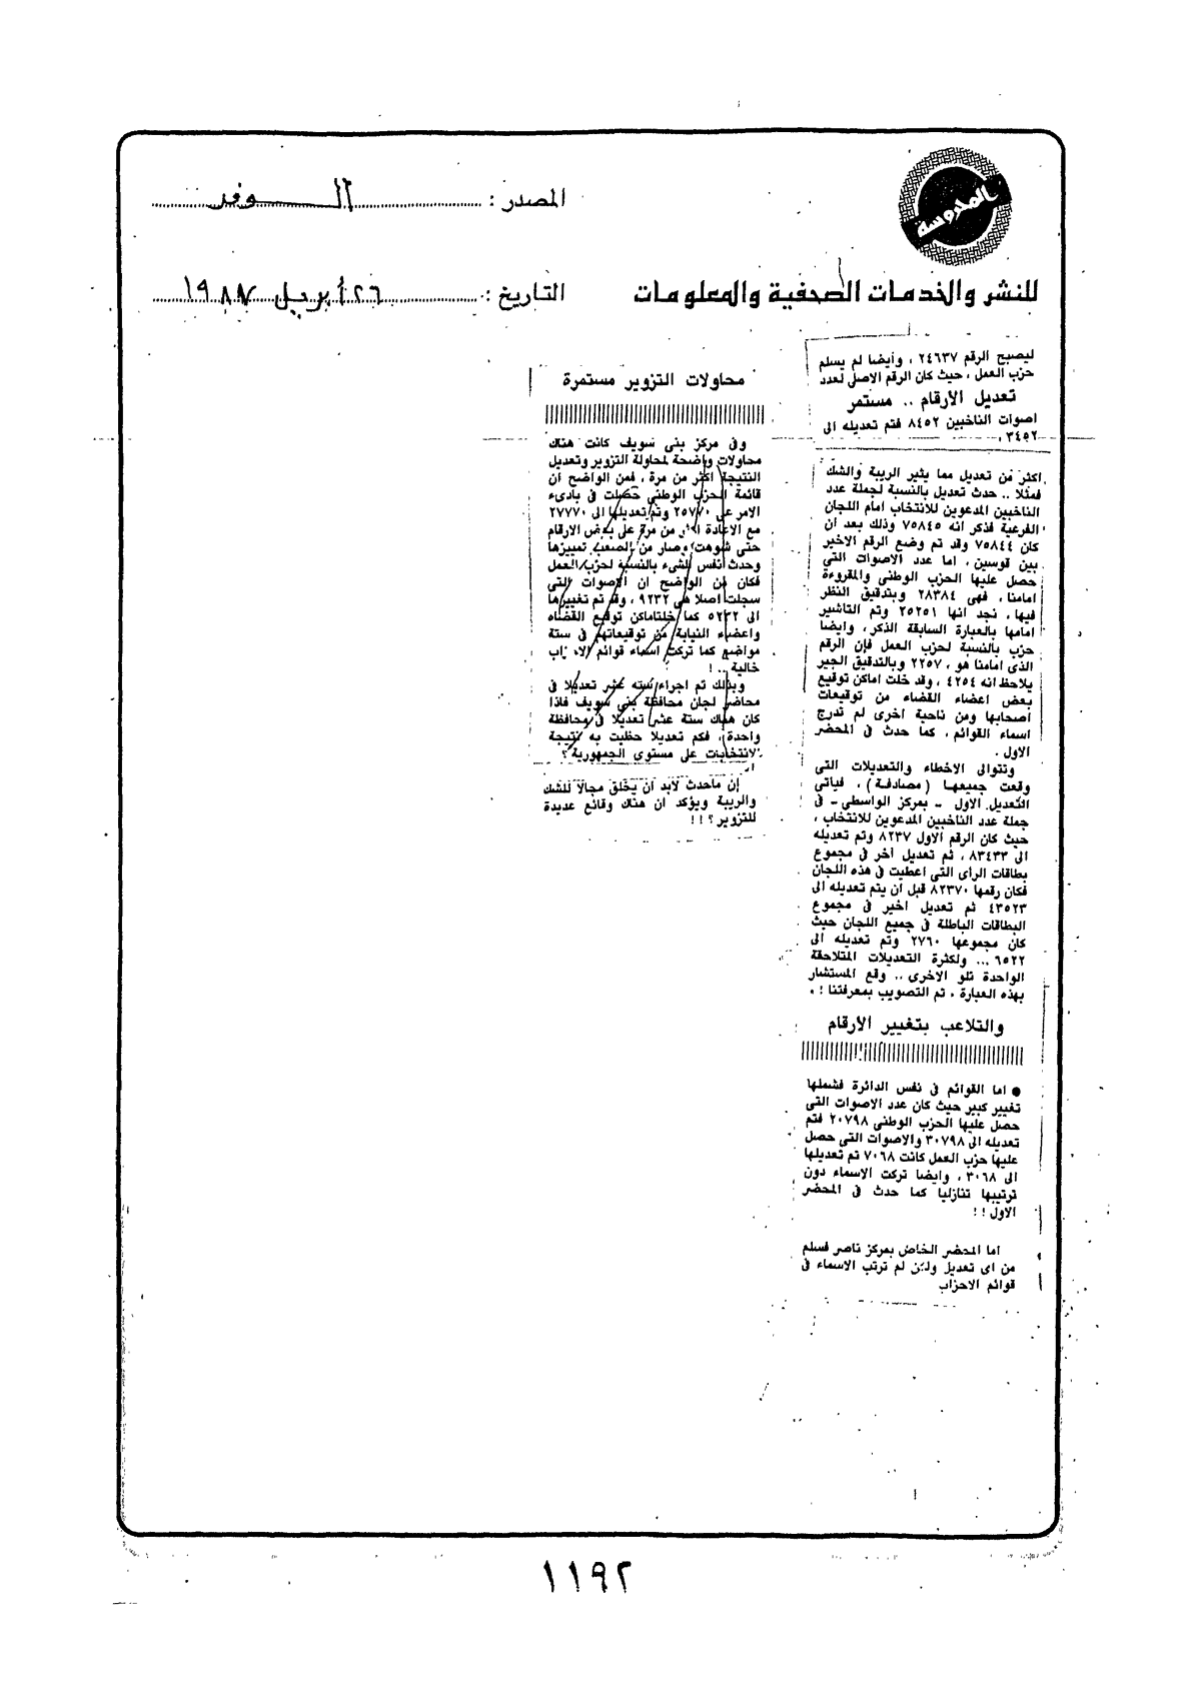 المحروسة
المصدر : الوفد
للنشر والخدمات الصحفية والمعلومات
التاريخ : ٢٦ أبريل ١٩٨٧
ليصبح الرقم ٢٤٦٣٧ ، وأيضا لم يسلم
حزب العمل ، حيث كان الرقم الاصلى لعدد
تعديل الأرقام .. مستمر
اصوات الناخبين ٨٤٥٢ فتم تعديله الى
٣٤٥٢ ،
اكثر من تعديل مما يثير الريبة والشك
فمثلا .. حدث تعديل بالنسبة لجملة عدد
الناخبين المدعوين للانتخاب امام اللجان
الفرعية فذكر انه ٧٥٨٤٥ وذلك بعد ان
كان ٧٥٨٤٤ وقد تم وضع الرقم الاخير
بين قوسين ، اما عدد الاصوات التى
حصل عليها الحزب الوطنى والمقروءة
امامنا ، فهى ٢٨٣٨٤ وبتدقيق النظر
فيها ، نجد انها ٢٥٢٥١ وتم التاشير
امامها بالعبارة السابقة الذكر ، وايضا
حزب بالنسبة لحزب العمل فإن الرقم
الذى امامنا هو ، ٢٢٥٧ وبالتدقيق الجير
يلاحظ انه ٤٢٥٤ ، وقد خلت اماكن توقيع
بعض اعضاء القضاء من توقيعات
اصحابها ومن ناحية اخرى لم تدرج
اسماء القوائم ، كما حدث فى المحضر
الاول .
وتتوالى الاخطاء والتعديلات التى
وقعت جميعها ( مصادفة ) ، فياتى
التعديل الاول - بمركز الواسطى - فى
جملة عدد الناخبين المدعوين للانتخاب ،
حيث كان الرقم الاول ٨٢٣٧ وتم تعديله
الى ٨٣٤٣٣ ، ثم تعديل آخر فى مجموع
بطاقات الراى التى اعطيت فى هذه اللجان
فكان رقمها ٨٢٣٧٠ قبل ان يتم تعديله الى
٤٣٥٢٣ ثم تعديل اخير فى مجموع
البطاقات الباطلة فى جميع اللجان حيث
كان مجموعها ٢٧٦٠ وتم تعديله الى
٦٥٢٢ ... ولكثرة التعديلات المتلاحقة
الواحدة تلو الاخرى .. وقع المستشار
بهذه العبارة ، تم التصويب بمعرفتنا ! .
والتلاعب بتغيير الأرقام
● اما القوائم فى نفس الدائرة فشملها
تغيير كبير حيث كان عدد الاصوات التى
حصل عليها الحزب الوطنى ٢٠٧٩٨ فتم
تعديله الى ٣٠٧٩٨ والاصوات التى حصل
عليها حزب العمل كانت ٧٠٦٨ تم تعديلها
الى ٣٠٦٨ ، وايضا تركت الاسماء دون
ترتيبها تنازليا كما حدث فى المحضر
الاول ! !
اما المحضر الخاص بمركز ناصر فسلم
من اى تعديل ولكن لم ترتب الاسماء فى
قوائم الاحزاب
محاولات التزوير مستمرة
وفى مركز بنى سويف كانت هناك
محاولات واضحة لمحاولة التزوير وتعديل
النتيجة اكثر من مرة ، فمن الواضح ان
قائمة الحزب الوطنى حصلت فى بادىء
الامر على ٢٥٧٧٠ وتم تعديلها الى ٢٧٧٧٠
مع الاعادة اكثر من مرة على بعض الارقام
حتى شوهت وصار من الصعب تمييزها
وحدث نفس الشىء بالنسبة لحزب العمل
فكان من الواضح ان الاصوات التى
سجلت اصلا هى ٩٢٣٢ ، وقد تم تغييرها
الى ٥٢٣٢ كما خلت اماكن توقيع القضاه
واعضاء النيابة من توقيعاتهم فى ستة
مواضع كما تركت اسماء قوائم الاحزاب
خالية .. !
وبذلك تم اجراء سته عشر تعديلا فى
محاضر لجان محافظة بنى سويف فاذا
كان هناك ستة عشر تعديلا فى محافظة
واحدة ، فكم تعديلا حظيت به نتيجة
الانتخابات على مستوى الجمهورية ؟
إن ماحدث لابد ان يخلق مجالا للشك
والريبة ويؤكد ان هناك وقائع عديدة
للتزوير ؟ ! !
١١٩٢